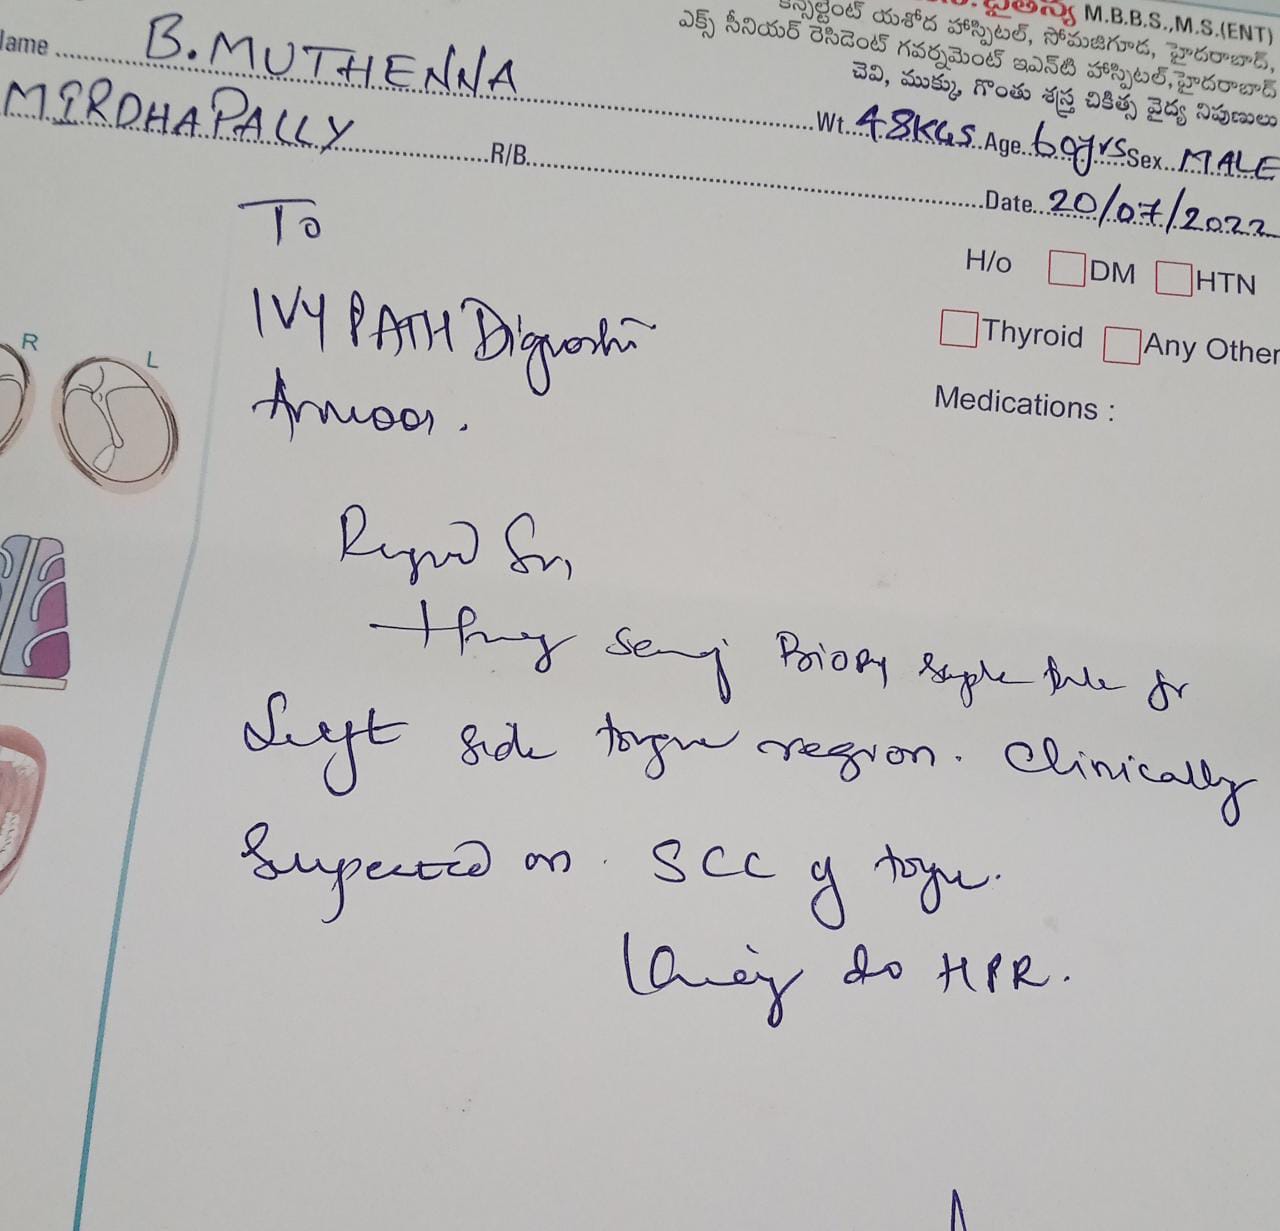 చైతన్య M.B.B.S.,M.S.(ENT)
కన్సల్టెంట్ యశోద హాస్పిటల్, సోమజిగూడ, హైదరాబాద్,
ఎక్స్ సీనియర్ రెసిడెంట్ గవర్నమెంట్ ఇఎన్‌టి హాస్పిటల్, హైదరాబాద్
చెవి, ముక్కు, గొంతు శస్త్ర చికిత్స వైద్య నిపుణులు
Name B.MUTHENNA
Wt. 48KGS Age. 60yrs Sex. MALE
MIRDHAPALLY R/B. Date. 20/07/2022
To
H/o DM HTN
IVY PATH
Thyroid Any Other
Armoor.
Medications :
R L
Sir,
Biopsy from
Left side tongue region. Clinically
Suspected SCC of tongue.
Kindly do HPR.